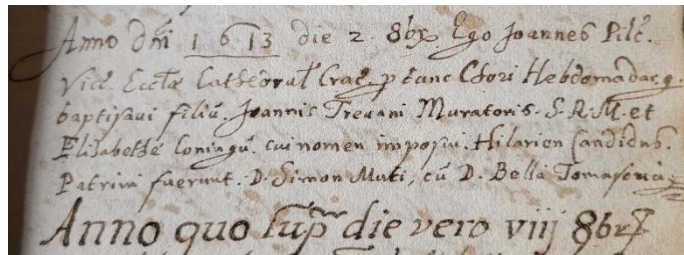 Anno dñi 1613 die 2. 8bx Ego Joannes Pilč.
Vice. Eccłæ Cathedral Crac. p tunc Chori Hebdomadar. q.
baptisavi filiũ. Joannis Trevani Muratoris. S. R. M. et
Elisabethæ Coniugũ. cui nomen imposui. Hilarion Candidus.
Patrini fuerunt. D. Simon Muti, cũ D. Bella Tomasoria
Anno quo supr die vero viij 8br